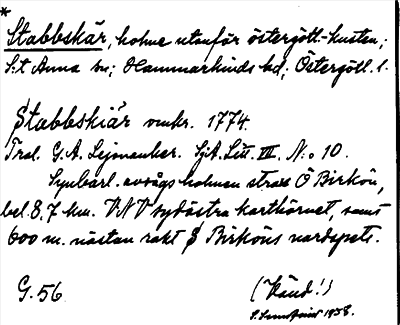 *
Stabbskär, holme utanför östergötl.-kusten;
S:t Anna sn; Hammarkinds hd; Östergötl. l.
Stabbskiär omkr. 1774.
Tral. G. A. Lejonanker. SjA. Litt. III. N:o 10.
Synbarl. avsågs holmen strax Ö Birkön,
bel. 8,7 km. VNV sydöstra karthörnet, samt
600 m. nästan rakt S Birköns nordspets.
G. 56.
(Vänd!)
1958.